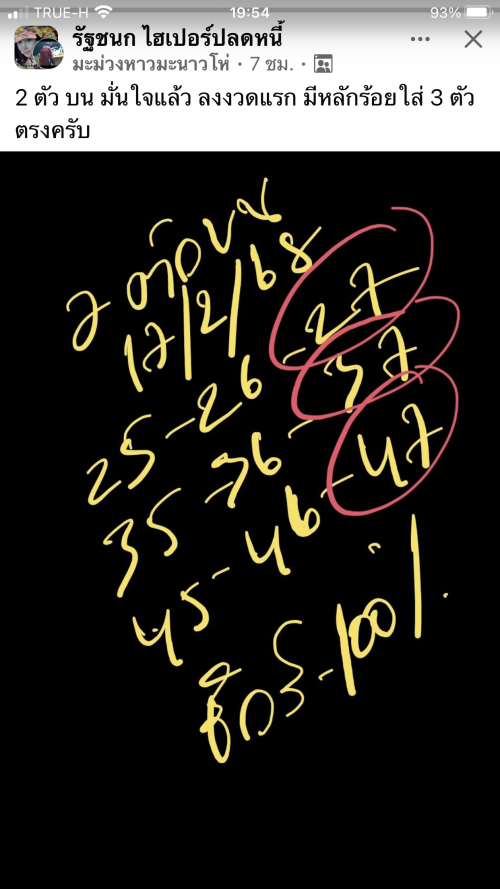 TRUE-H 19:54 93%
รัฐชนก ไฮเปอร์ปลดหนี้
มะม่วงหาวมะนาวโห่ · 7 ชม. ·
2 ตัว บน มั่นใจแล้ว ลงงวดแรก มีหลักร้อยใส่ 3 ตัว
ตรงครับ
2 ตัวบน
17/2/68
25-26-27
35-36-37
45-46-47
-100%.